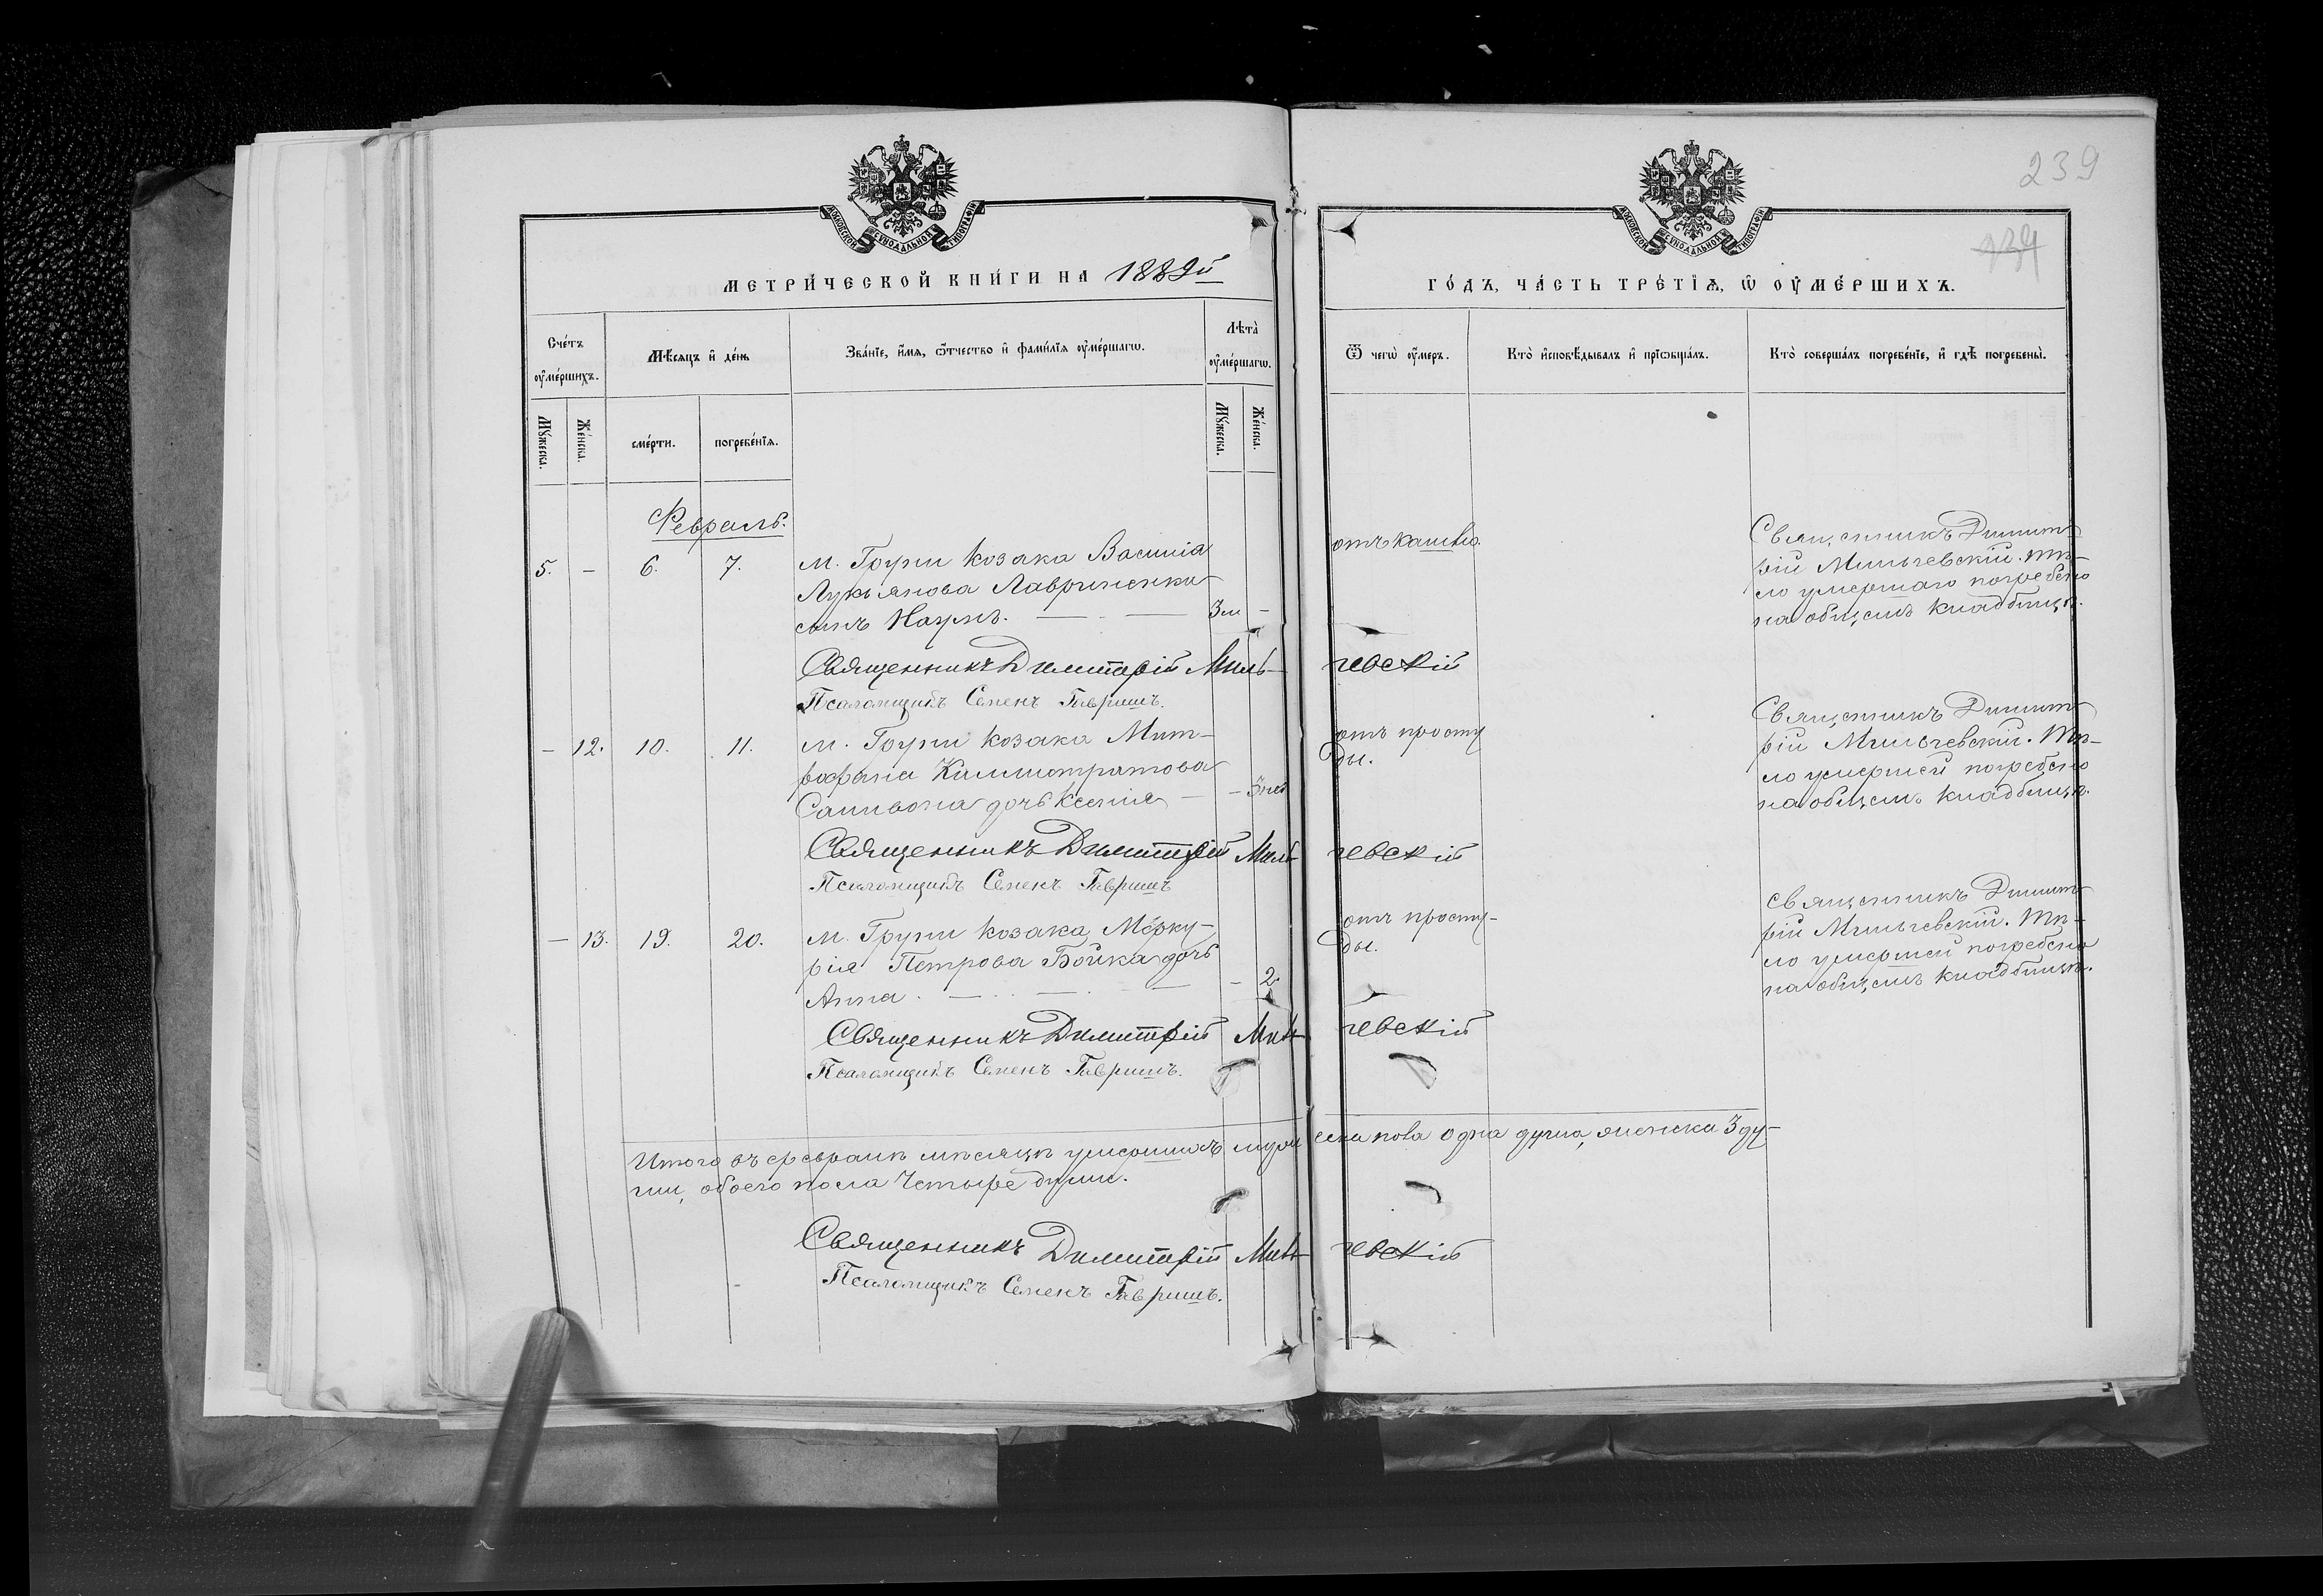 239
134
МОСКОВСКОЙ СУНОДАЛЬНОЙ ТИПОГРАФІИ
МОСКОВСКОЙ СУНОДАЛЬНОЙ ТИПОГРАФІИ
МЕТРИ́ЧЕСКОЙ КНИ́ГИ НА 1889й
ГО́ДЪ, ЧА́СТЬ ТРЕ́ТЇѦ, Ѿ ОУ҆МЕ́РШИХЪ.
Сче́тъ оу҆ме́ршихъ.
Мѣ́сяцъ и҆ де́нь
Зва́нїе, и҆́мѧ, ѻ҆́тчество и҆ фами́лїѧ оу҆ме́ршагѡ.
Лѣта̀ оу҆ме́ршагѡ.
Ѿ чегѡ̀ оу҆́меръ.
Кто̀ и҆сповѣ́дывалъ и҆ прїѡбща́лъ.
Кто̀ соверша́лъ погребе́нїе, и҆ гдѣ̀ погребены̀.
Мꙋ́жеска.
Же́нска.
сме́рти.
погребе́нїѧ.
Мꙋ́жеска.
Же́нска.
Февраль.
5. — 6. 7. м. Груни козака Василія
Лукьянова Лавриненка
сынъ Наумъ. 3 м —
отъ кашля.
Священникъ Димит-
рій Мильчевскій. Тѣ-
ло умершаго погребено
на общемъ кладбищѣ.
Священникъ Димитрій Мильчевскій
Псаломщикъ Семенъ Гавришъ.
— 12. 10. 11. м. Груни козака Мит-
рофана Каллистратова
Саливона дочь Ксенія — — 3 нед
отъ просту
ды.
Священникъ Димит-
рій Мильчевскій. Тѣ-
ло умершей погребено
на общемъ кладбищѣ.
Священникъ Димитрій Мильчевскій
Псаломщикъ Семенъ Гавришъ
— 13. 19. 20. м. Груни козака Мерку-
рія Петрова Бойка дочь
Анна. — 2.
отъ просту-
ды.
Священникъ Димит-
рій Мильчевскій. Тѣ-
ло умершей погребено
на общемъ кладбищѣ.
Священникъ Димитрій Мильчевскій
Псаломщикъ Семенъ Гавришъ.
Итого въ февралѣ мѣсяцѣ умершихъ мужеска пола одна душа, женска 3 ду-
ши, обоего пола четыре души.
Священникъ Димитрій Мильчевскій
Псаломщикъ Семенъ Гавришъ.